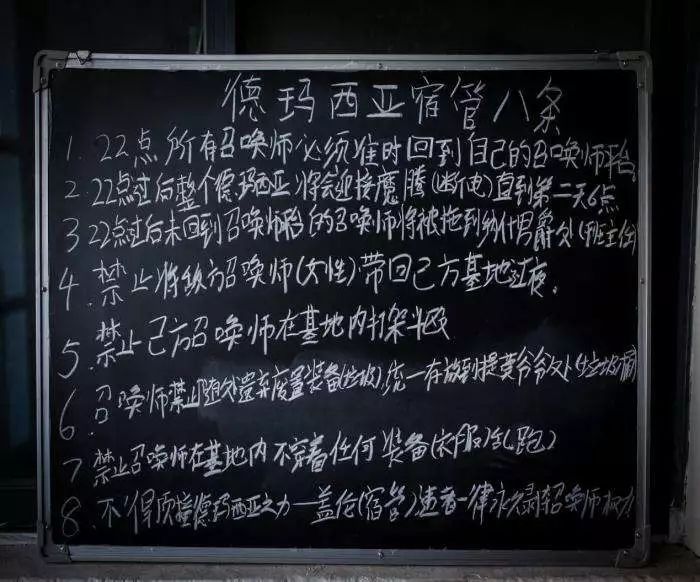 德玛西亚宿管八条
1. 22点所有召唤师必须准时回到自己的召唤师平台
2. 22点过后整个德玛西亚将会迎接魔腾(断电)直到第二天6点
3 22点过后未回到召唤师平台的召唤师将被拖到纳什男爵处(班主任)
4. 禁止将敌方召唤师(女性)带回己方基地过夜。
5. 禁止己方召唤师在基地内打架斗殴
6. 召唤师禁止随处遗弃废置装备(垃圾),统一存放到提莫爷爷处(垃圾桶)
7 禁止召唤师在基地内不穿着任何装备(衣服)乱跑)
8. 不得顶撞德玛西亚之力—盖伦(宿管)违者一律永久剥召唤师权力